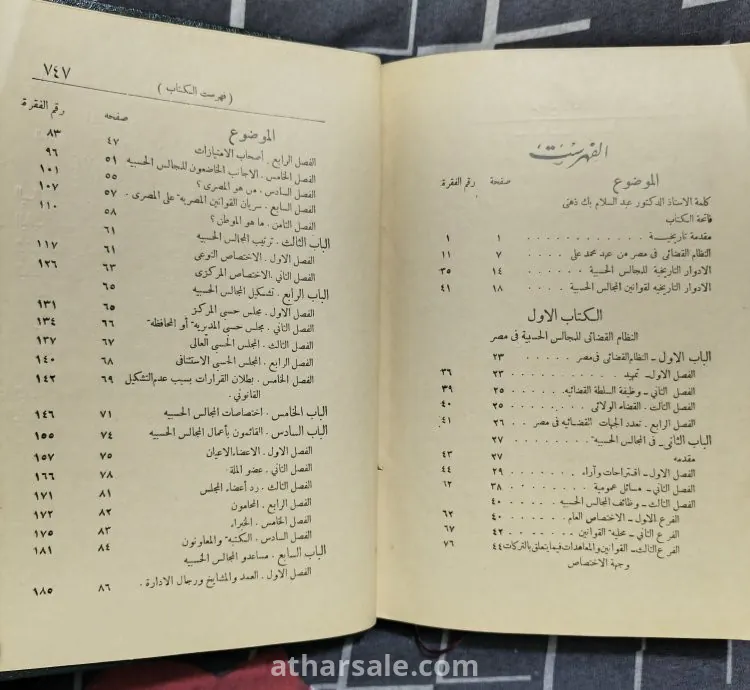 الفهرست
الموضوع صفحة رقم الفقرة
كلمة الاستاذ الدكتور عبد السلام بك ذهنى
فاتحة الكتاب
مقدمة تاريخية . . . . . . . . . . . ١ ١
النظام القضائى فى مصر من عهد محمد على ٧ ١١
الادوار التاريخية للمجالس الحسبية . . . . . ١٤ ٣٥
الادوار التاريخية لقوانين المجالس الحسبية . . . . ١٨ ٤١
الكتاب الاول
النظام القضائى للمجالس الحسبية فى مصر
الباب الاول ــ النظام القضائى فى مصر . . . . . . ٢٣
الفصل الاول ــ تمهيد . . . . . . . . . . ٢٣ ٣٦
الفصل الثانى ــ وظيفة السلطة القضائيه . . ٢٥ ٣٩
الفصل الثالث . القضاء الولائى . . . . . . ٢٥ ٤٠
الفصل الرابع . تعدد الجهات القضائيه فى مصر . . ٢٦ ٤١
الباب الثانى ــ فى المجالس الحسبيه . . . . . . . ٢٧
مقدمه ٢٧ ٤٣
الفصل الاول ــ اقتراحات وآراء . . . . . . . ٢٩ ٤٤
الفصل الثانى ــ مسائل عمومية . . . . . . . ٣٨ ٦٢
الفصل الثالث ــ وظائف المجالس الحسبيه . . . . ٤٠
الفرع الاول ــ الاختصاص العام . . . . ٤٠ ٦٢
الفرع الثانى ــ محلية القوانين . . . . . . ٤٢ ٦٧
الفرع الثالث ــ القوانين والمعاهدات فيما يتعلق بالتركات ٤٤ ٧٦
وجهة الاختصاص
( فهرست الكتاب ) ٧٤٧
الموضوع صفحة رقم الفقرة
الفصل الرابع . أصحاب الامتيازات ٤٧ ٨٣
الفصل الخامس . الاجانب الخاضعون للمجالس الحسبيه ٥١ ٩٦
الفصل السادس . من هو المصرى ؟ ٥٥ ١٠١
الفصل السابع . سريان القوانين المصريه على المصرى . ٥٧ ١٠٧
الفصل الثامن . ما هو الموطن ؟ ٥٨ ١١٠
الباب الثالث . ترتيب المجالس الحسبيه ٦١
الفصل الاول . الاختصاص النوعى ٦١ ١١٧
الفصل الثانى . الاختصاص المركزى ٦٣ ١٢٦
الباب الرابع . تشكيل المجالس الحسبيه ٦٥
الفصل الاول . مجلس حسبى المركز ٦٥ ٩٣١
الفصل الثانى . مجلس حسبى المديريه أو المحافظه ٦٦ ١٣٤
الفصل الثالث . المجلس الحسبى العالى ٦٧ ١٣٧
الفصل الرابع . المجلس الحسبى الاستئنافى ٦٨ ١٤٠
الفصل الخامس . بطلان القرارات بسبب عدم التشكيل ٦٩ ١٤٢
القانونى .
الباب الخامس . اختصاصات المجالس الحسبيه ٧١ ١٤٦
الباب السادس . القائمون بأعمال المجالس الحسبيه ٧٤ ١٥٥
الفصل الاول . الاعضاء الاعيان ٧٥ ١٥٧
الفصل الثانى . عضو الملة ٧٨ ١٦٦
الفصل الثالث . رد أعضاء المجلس ٨١ ١٧١
الفصل الرابع . المحامون ٨٢ ١٧٢
الفصل الخامس . الخبراء ٨٣ ١٧٥
الفصل السادس . الكتبه والمعاونون ٨٤ ١٨١
الباب السابع . مساعدو المجالس الحسبيه
الفصل الاول . العمد والمشايخ ورجال الادارة . ٨٦ ١٨٥
atharsale.com